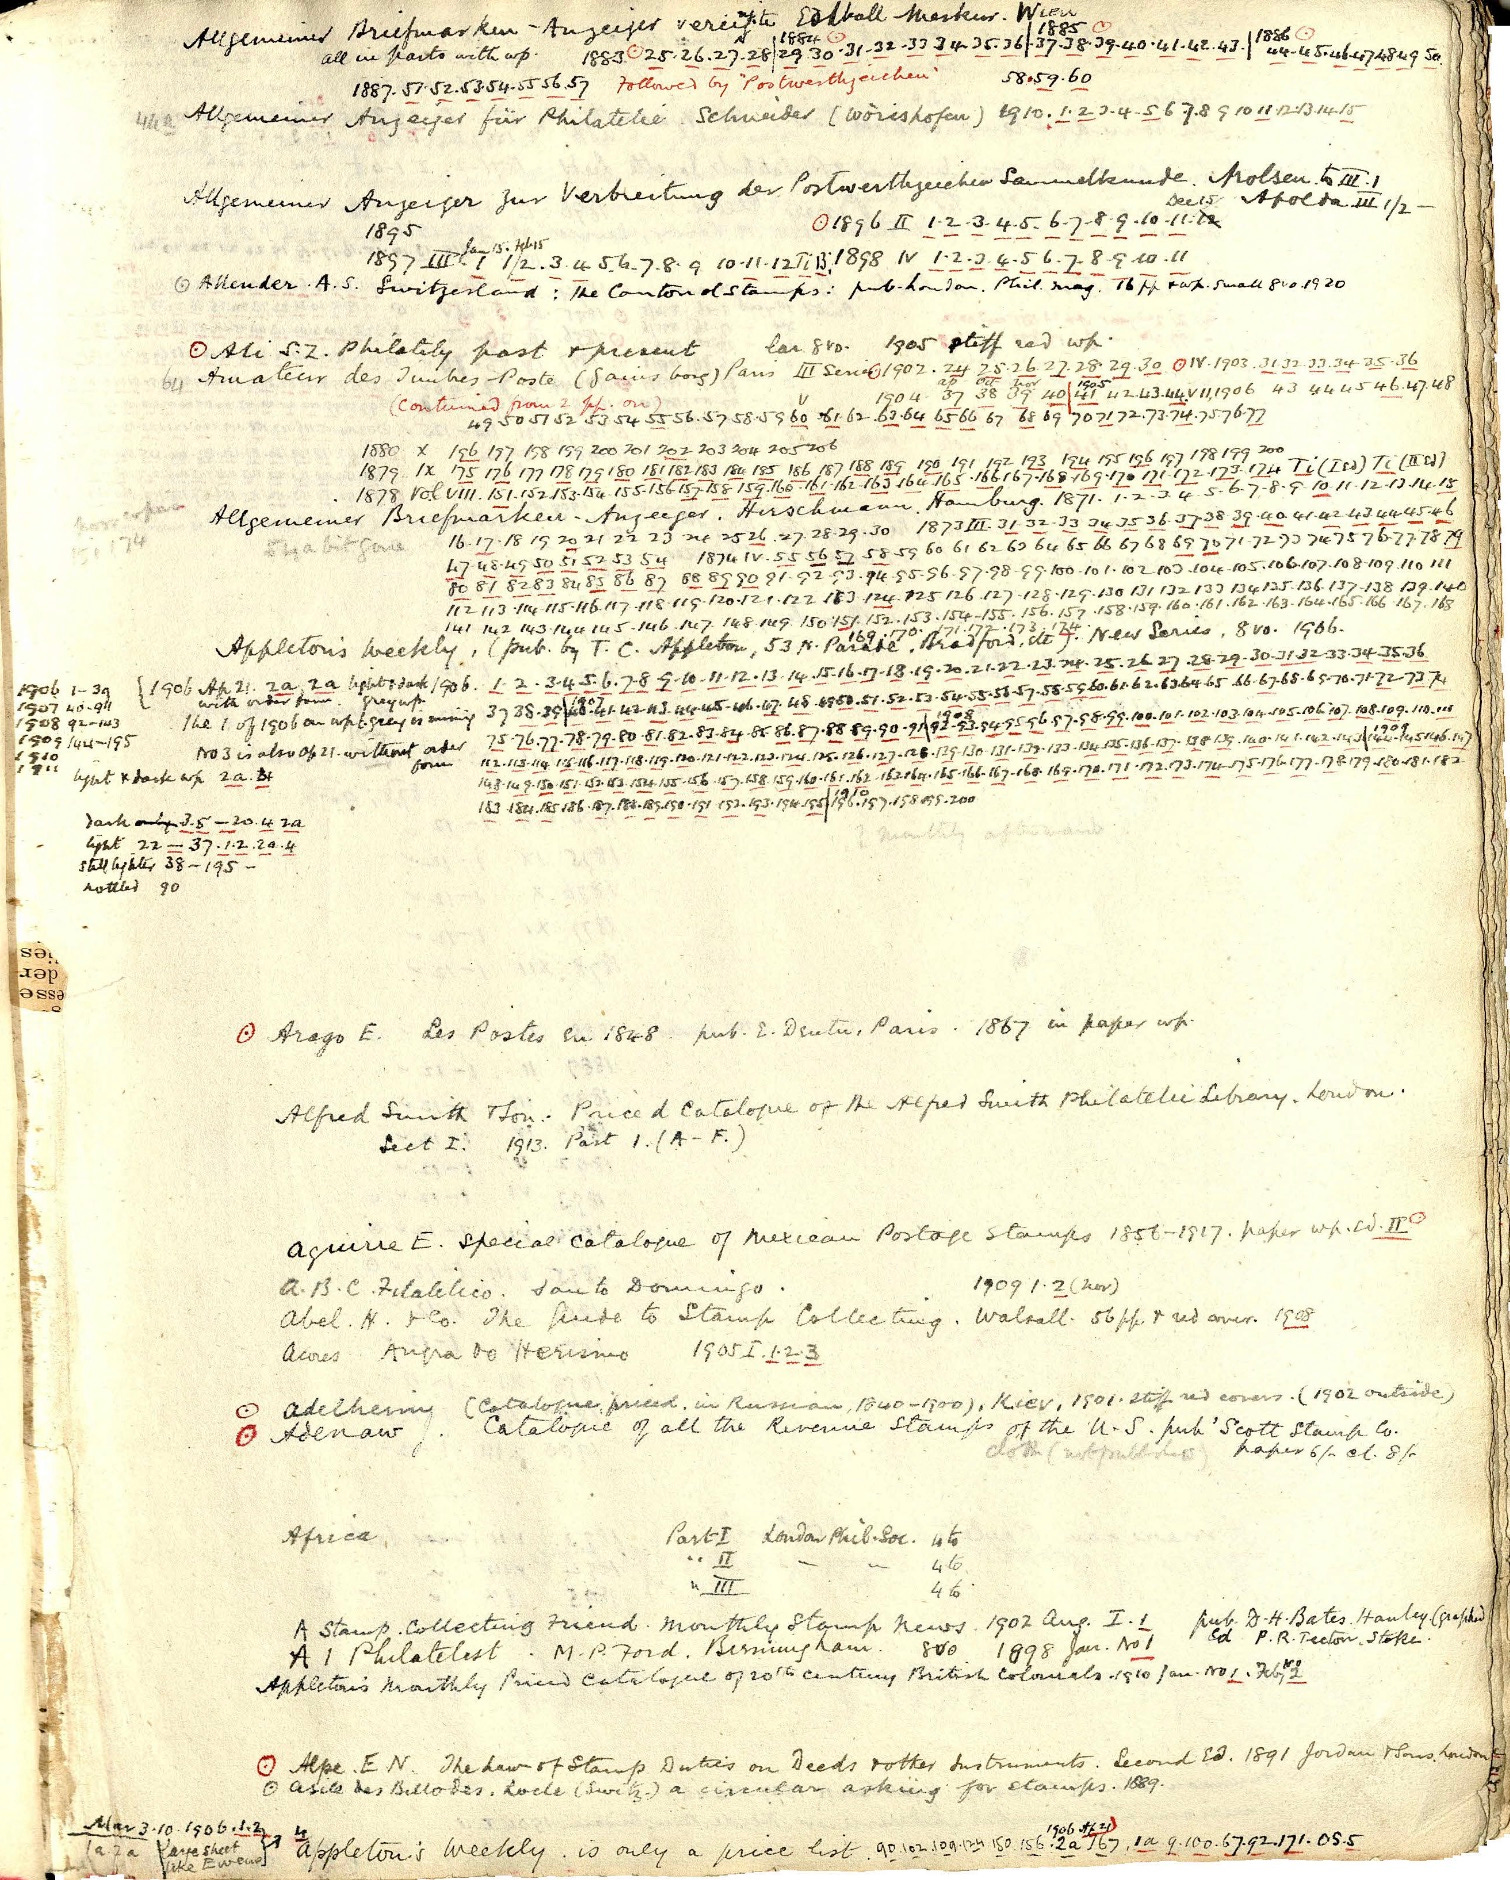 Allgemeiner Briefmarken-Anzeiger Merkur. Wien
all in parts with wp. 1883 25.26.27.28 1884 29 30.31.32.33 34.35.36 1885 37.38.39.40.41.42.43. 1886 44.45.46.47.48.49.50
1887. 51.52.53.54.55 56.57 Followed by "Postwerthzeichen" 58.59.60
Allgemeiner Anzeiger für Philatelie Schneider (Wörishofen) 1910. 1.2 3.4.5 6 7.8 9 10 11.12.13.14.15
Allgemeiner Anzeiger zur Verbreitung der Postwerthzeichen Sammelkunde. to III.1
Dec 15 Apolda III 1/2 —
1895 1896 II 1.2.3.4.5. 6.7.8.9.10.11.12
Jan 15. Feb 15
1897 III. 1 1/2.3.4 5 6.7.8.9 10.11.12 1898 IV 1.2.3.4.5 6.7.8.9.10.11
A.S. Switzerland: The Canton of Stamps: pub. London. Phil. Mag. 16 pp + wp. small 8vo. 1920
Ali S.Z. Philately past + present 8vo. 1905 stiff red wp.
64 Amateur des Timbres-Poste (Gainsborg) Paris III Serie 1902. 24 25.26 27.28.29.30 IV. 1903. 31 32.33.34.35.36
(continued from 2 pp. on) V 1904 37 38 39 40 1905 41 42.43.44 VII 1906 43 44 45 46.47.48
49 50 51 52 53 54 55 56.57 58.59 60 61.62.63.64 65 66 67 68 69 70 71 72.73.74.75 76 77
1880 X 196 197 198 199 200 201 202 203 204 205 206
1879 IX 175 176 177 178 179 180 181 182 183 184 185 186 187 188 189 190 191 192 193 194 195 196 197 198 199 200
1878 Vol VIII. 151.152.153.154.155.156.157.158 159.160.161.162 163 164.165.166.167.168.169.170 171.172.173.174
Allgemeiner Briefmarken-Anzeiger. Hirschmann. Hamburg. 1871. 1.2.3.4 5.6.7.8.9.10.11.12.13.14.15
16.17.18 19 20 21 22 23 24 25 26.27.28.29.30 1873 III. 31.32.33 34.35.36.37.38.39.40.41.42.43.44.45.46
47.48.49 50 51 52 53 54 1874 IV. 55 56 57 58.59 60 61 62 63 64 65 66 67 68 69 70 71.72.73 74 75 76.77.78 79
80 81 82 83 84 85 86 87 88 89 90 91.92.93.94.95.96.97.98.99.100.101.102.103.104.105.106.107.108.109.110 111
112 113.114 115.116.117.118.119.120.121.122 123 124.125 126 127.128.129.130 131 132 133 134 135.136.137.138 139.140
141 142 143.144 145.146.147 148.149 150 151.152.153.154.155.156.157.158.159.160.161.162.163.164.165.166 167.168
169.170.171.172.173.174
Appleton's Weekly, (pub. by T. C. Appleton, 53 N. Parade, Bradford. New Series, 8vo. 1906.
1906 1-39 1906 Ap 21. 2a, 2a light & dark 1906. 1.2.3.4.5.6.7.8.9.10.11.12.13.14.15.16.17.18.19.20.21.22.23.24.25.26.27.28.29.30.31.32.33.34.35.36
1907 40-91 with order form. grey wp
1908 92-143 The 1 of 1906 on wp. grey is missing 37 38.39 1907 40.41.42.43.44.45.46.47.48 49 50.51.52.53.54.55.56.57.58.59 60.61.62.63 64 65.66.67.68.69.70.71.72.73 74
1909 144-195 No 3 is also Ap 21. without order form 75.76.77.78.79.80.81.82.83.84.85.86.87.88 89.90.91 1908 92.93.94.95.96.97.98.99.100.101.102.103.104.105.106.107.108.109.110.111
1910
1911 light & dark wp 2a.
112.113.114.115.116.117.118.119.120.121.122.123.124.125.126.127.128.129.130.131.132.133.134.135.136.137.138.139.140.141.142.143 1909 144.145.146.147
148.149.150.151.152.153.154.155.156.157.158.159.160.161.162.163.164.165.166.167.168.169.170.171.172.173.174.175.176.177.178.179.180.181.182
183.184.185.186.187.188.189.190.191.192.193.194.195 1910 196.197.198.199.200
2 monthly afterwards
dark only 3.5 — 20.4 2a
light 22 — 37.1.2.2a.4
still lighter 38 — 195 —
mottled 90
Arago E. Les Postes en 1848 pub. E. Dentu, Paris. 1867 in paper wp.
Alfred Smith & Son. Priced Catalogue of the Alfred Smith Philatelic Library. London.
Sect I. 1913. Part 1. (A-F.)
Aguirre E. Special Catalogue of Mexican Postage Stamps 1856-1917. paper wp. Ed. II
A.B.C. Filatelico. Santo Domingo. 1909 1.2 (Nov)
Abel. H. & Co. The Guide to Stamp Collecting. Walsall. 56 pp. + red cover. 1908
Acores Angra do Heroismo 1905 I.1.2.3
Adelheim (Catalogue, priced, in Russian, 1840-1900), Kiev, 1901. stiff red covers. (1902 outside)
Adenaw J. Catalogue of all the Revenue Stamps of the U.S. pub' Scott Stamp Co.
cloth (not published) paper 6/- cl. 8/-
Africa, Part I London Phil. Soc. 4to
" II — " 4to
" III 4to
A Stamp Collecting Friend. Monthly Stamp News. 1902 Aug. I.1 pub. D.H. Bates. Hanley.
Ed P.R. Stoke.
A 1 Philatelist. M.P. Ford. Birmingham. 8vo 1898 Jan. No 1
Appleton's Monthly Priced Catalogue of 20th century British Colonials. 1910 Jan. No 1. Feb No 2
Alpe. E N. The Law of Stamp Duties on Deeds & other Instruments. Second Ed. 1891 Jordan & Sons. London
Asile des Billodes. Locle (Switz.) a circular asking for stamps. 1889.
Mar 3.10.1906.1.2
1a 2a large sheet like Ewens
Appleton's Weekly. is only a price list 90.102.109.124 150 156. 1906 Ap 21 2a 167, 1a 9.100.67.92.171.05.5